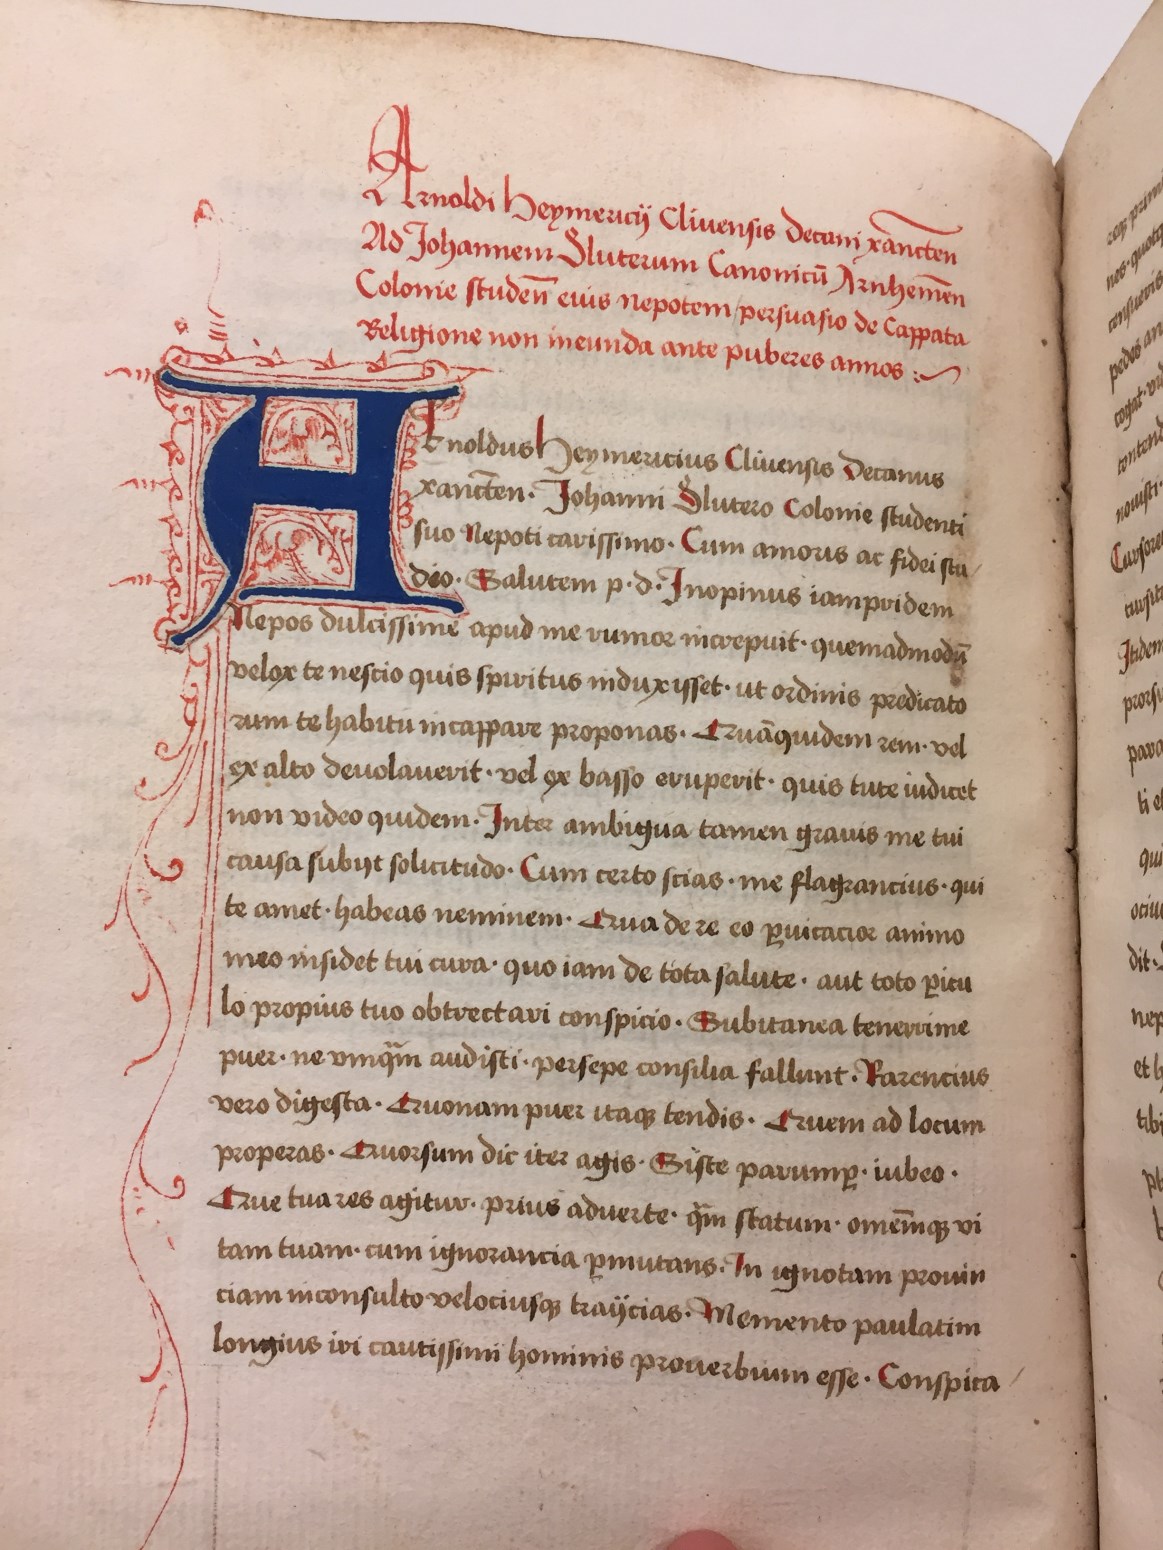 Arnoldi heymericij Cliuensis Decani xancten̄
Ad Johannem Sluterum Canonicū Arnhemen̄
Colonie studen̄ eius nepotem / persuasio de Cappata
Religione non ineunda ante puberes annos :~
Arnoldus heymericius Cliuensis Decanus
xancten̄· Johanni Slutero Colonie studenti
suo Nepoti carissimo· Cum amoris ac fidei stu/
dio· Salutem p·d· Inopinus iampridem
Nepos dulcissime apud me rumor increpuit· quemadmodū
velox te nescio quis spiritus induxisset· ut ordinis predicato
rum te habitu incappare proponas· Quāquidem rem· vel
ex alto deuolauerit· vel ex basso eruperit· quis tute iudicet
non video quidem· Inter ambigua tamen grauis me tui
causa subijt solicitudo· Cum certo scias· me flagrancius· qui
te amet· habeas neminem· Qua de re eo ꝑuicacior animo
meo insidet tui cura· quo iam de tota salute· aut toto ꝑicu
lo propius tuo obtrectari conspicio· Subitanea tenerrime
puer· ne vmqͣm audisti· persepe consilia fallunt· Rarencius
vero digesta· Quonam puer itaqꝫ tendis· Quem ad locum
properas· Quorsum dic iter agis· Siste parumꝑ· iubeo·
Que tua res agitur· prius aduerte· qͣm statum· omem̄qꝫ vi
tam tuam· cum ignorancia ꝑmutans· In ignotam prouin
ciam inconsulto velociusqꝫ traijcias· Memento paulatim
longius iri cautissimi hominis prouerbium esse· Conspica/